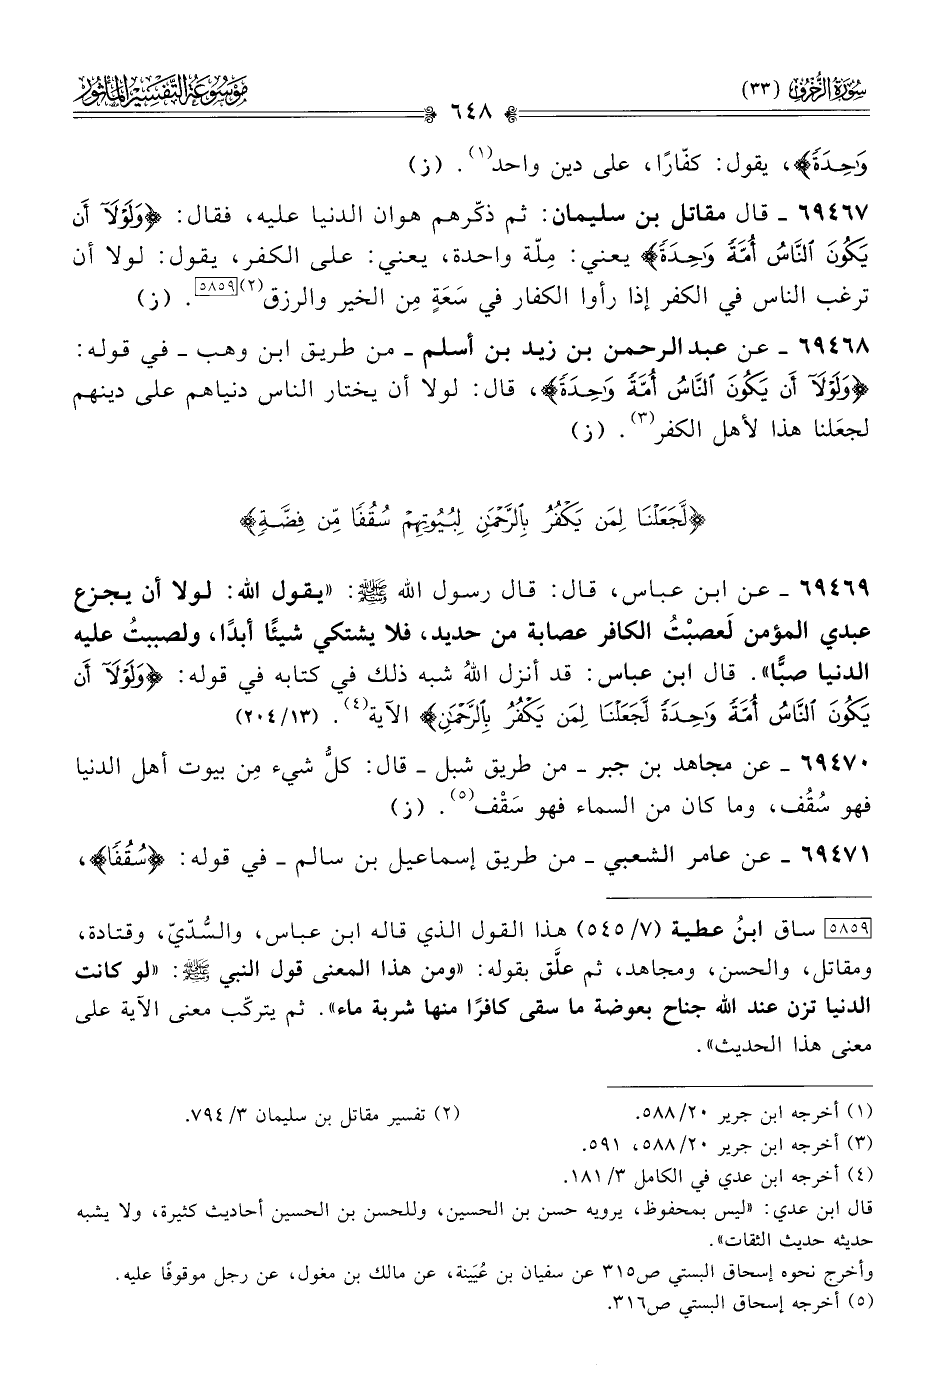 سُورَةُ الزُّخْرُفِ (٣٣)
٦٤٨
مَوْسُوعَةُ التَّفْسِيرِ الْمَأْثُورِ
وَٰحِدَةً﴾، يقول: كفّارًا، على دين واحد(١). (ز)
٦٩٤٦٧ ـ قال مقاتل بن سليمان: ثم ذكّرهم هوان الدنيا عليه، فقال: ﴿وَلَوْلَآ أَن
يَكُونَ ٱلنَّاسُ أُمَّةً وَٰحِدَةً﴾ يعني: مِلّة واحدة، يعني: على الكفر، يقول: لولا أن
ترغب الناس في الكفر إذا رأوا الكفار في سَعَةٍ مِن الخير والرزق(٢)[٥٨٥٩]. (ز)
٦٩٤٦٨ ـ عن عبد الرحمن بن زيد بن أسلم ـ من طريق ابن وهب ـ في قوله:
﴿وَلَوْلَآ أَن يَكُونَ ٱلنَّاسُ أُمَّةً وَٰحِدَةً﴾، قال: لولا أن يختار الناس دنياهم على دينهم
لجعَلنا هذا لأهل الكفر(٣). (ز)
﴿لَّجَعَلْنَا لِمَن يَكْفُرُ بِٱلرَّحْمَٰنِ لِبُيُوتِهِمْ سُقُفًا مِّن فِضَّةٍ﴾
٦٩٤٦٩ ـ عن ابن عباس، قال: قال رسول الله ﷺ: «يقول الله: لولا أن يجزع
عبدي المؤمن لَعصبْتُ الكافر عصابة من حديد، فلا يشتكي شيئًا أبدًا، ولصببتُ عليه
الدنيا صبًّا». قال ابن عباس: قد أنزل اللهُ شبه ذلك في كتابه في قوله: ﴿وَلَوْلَآ أَن
يَكُونَ ٱلنَّاسُ أُمَّةً وَٰحِدَةً لَّجَعَلْنَا لِمَن يَكْفُرُ بِٱلرَّحْمَٰنِ﴾ الآية(٤). (٢٠٤/١٣)
٦٩٤٧٠ ـ عن مجاهد بن جبر ـ من طريق شبل ـ قال: كلُّ شيء مِن بيوت أهل الدنيا
فهو سُقُف، وما كان من السماء فهو سَقْف(٥). (ز)
٦٩٤٧١ ـ عن عامر الشعبي ـ من طريق إسماعيل بن سالم ـ في قوله: ﴿سُقُفًا﴾،
[٥٨٥٩] ساق ابنُ عطية (٥٤٥/٧) هذا القول الذي قاله ابن عباس، والسُّدّيّ، وقتادة،
ومقاتل، والحسن، ومجاهد، ثم علَّق بقوله: «ومن هذا المعنى قول النبي ﷺ: «لو كانت
الدنيا تزن عند الله جناح بعوضة ما سقى كافرًا منها شربة ماء». ثم يتركّب معنى الآية على
معنى هذا الحديث».
(١) أخرجه ابن جرير ٥٨٨/٢٠. (٢) تفسير مقاتل بن سليمان ٧٩٤/٣.
(٣) أخرجه ابن جرير ٥٨٨/٢٠، ٥٩١.
(٤) أخرجه ابن عدي في الكامل ١٨١/٣.
قال ابن عدي: «ليس بمحفوظ، يرويه حسن بن الحسين، وللحسن بن الحسين أحاديث كثيرة، ولا يشبه
حديثه حديث الثقات».
وأخرج نحوه إسحاق البستي ص٣١٥ عن سفيان بن عُيَينة، عن مالك بن مغول، عن رجل موقوفًا عليه.
(٥) أخرجه إسحاق البستي ص٣١٦.